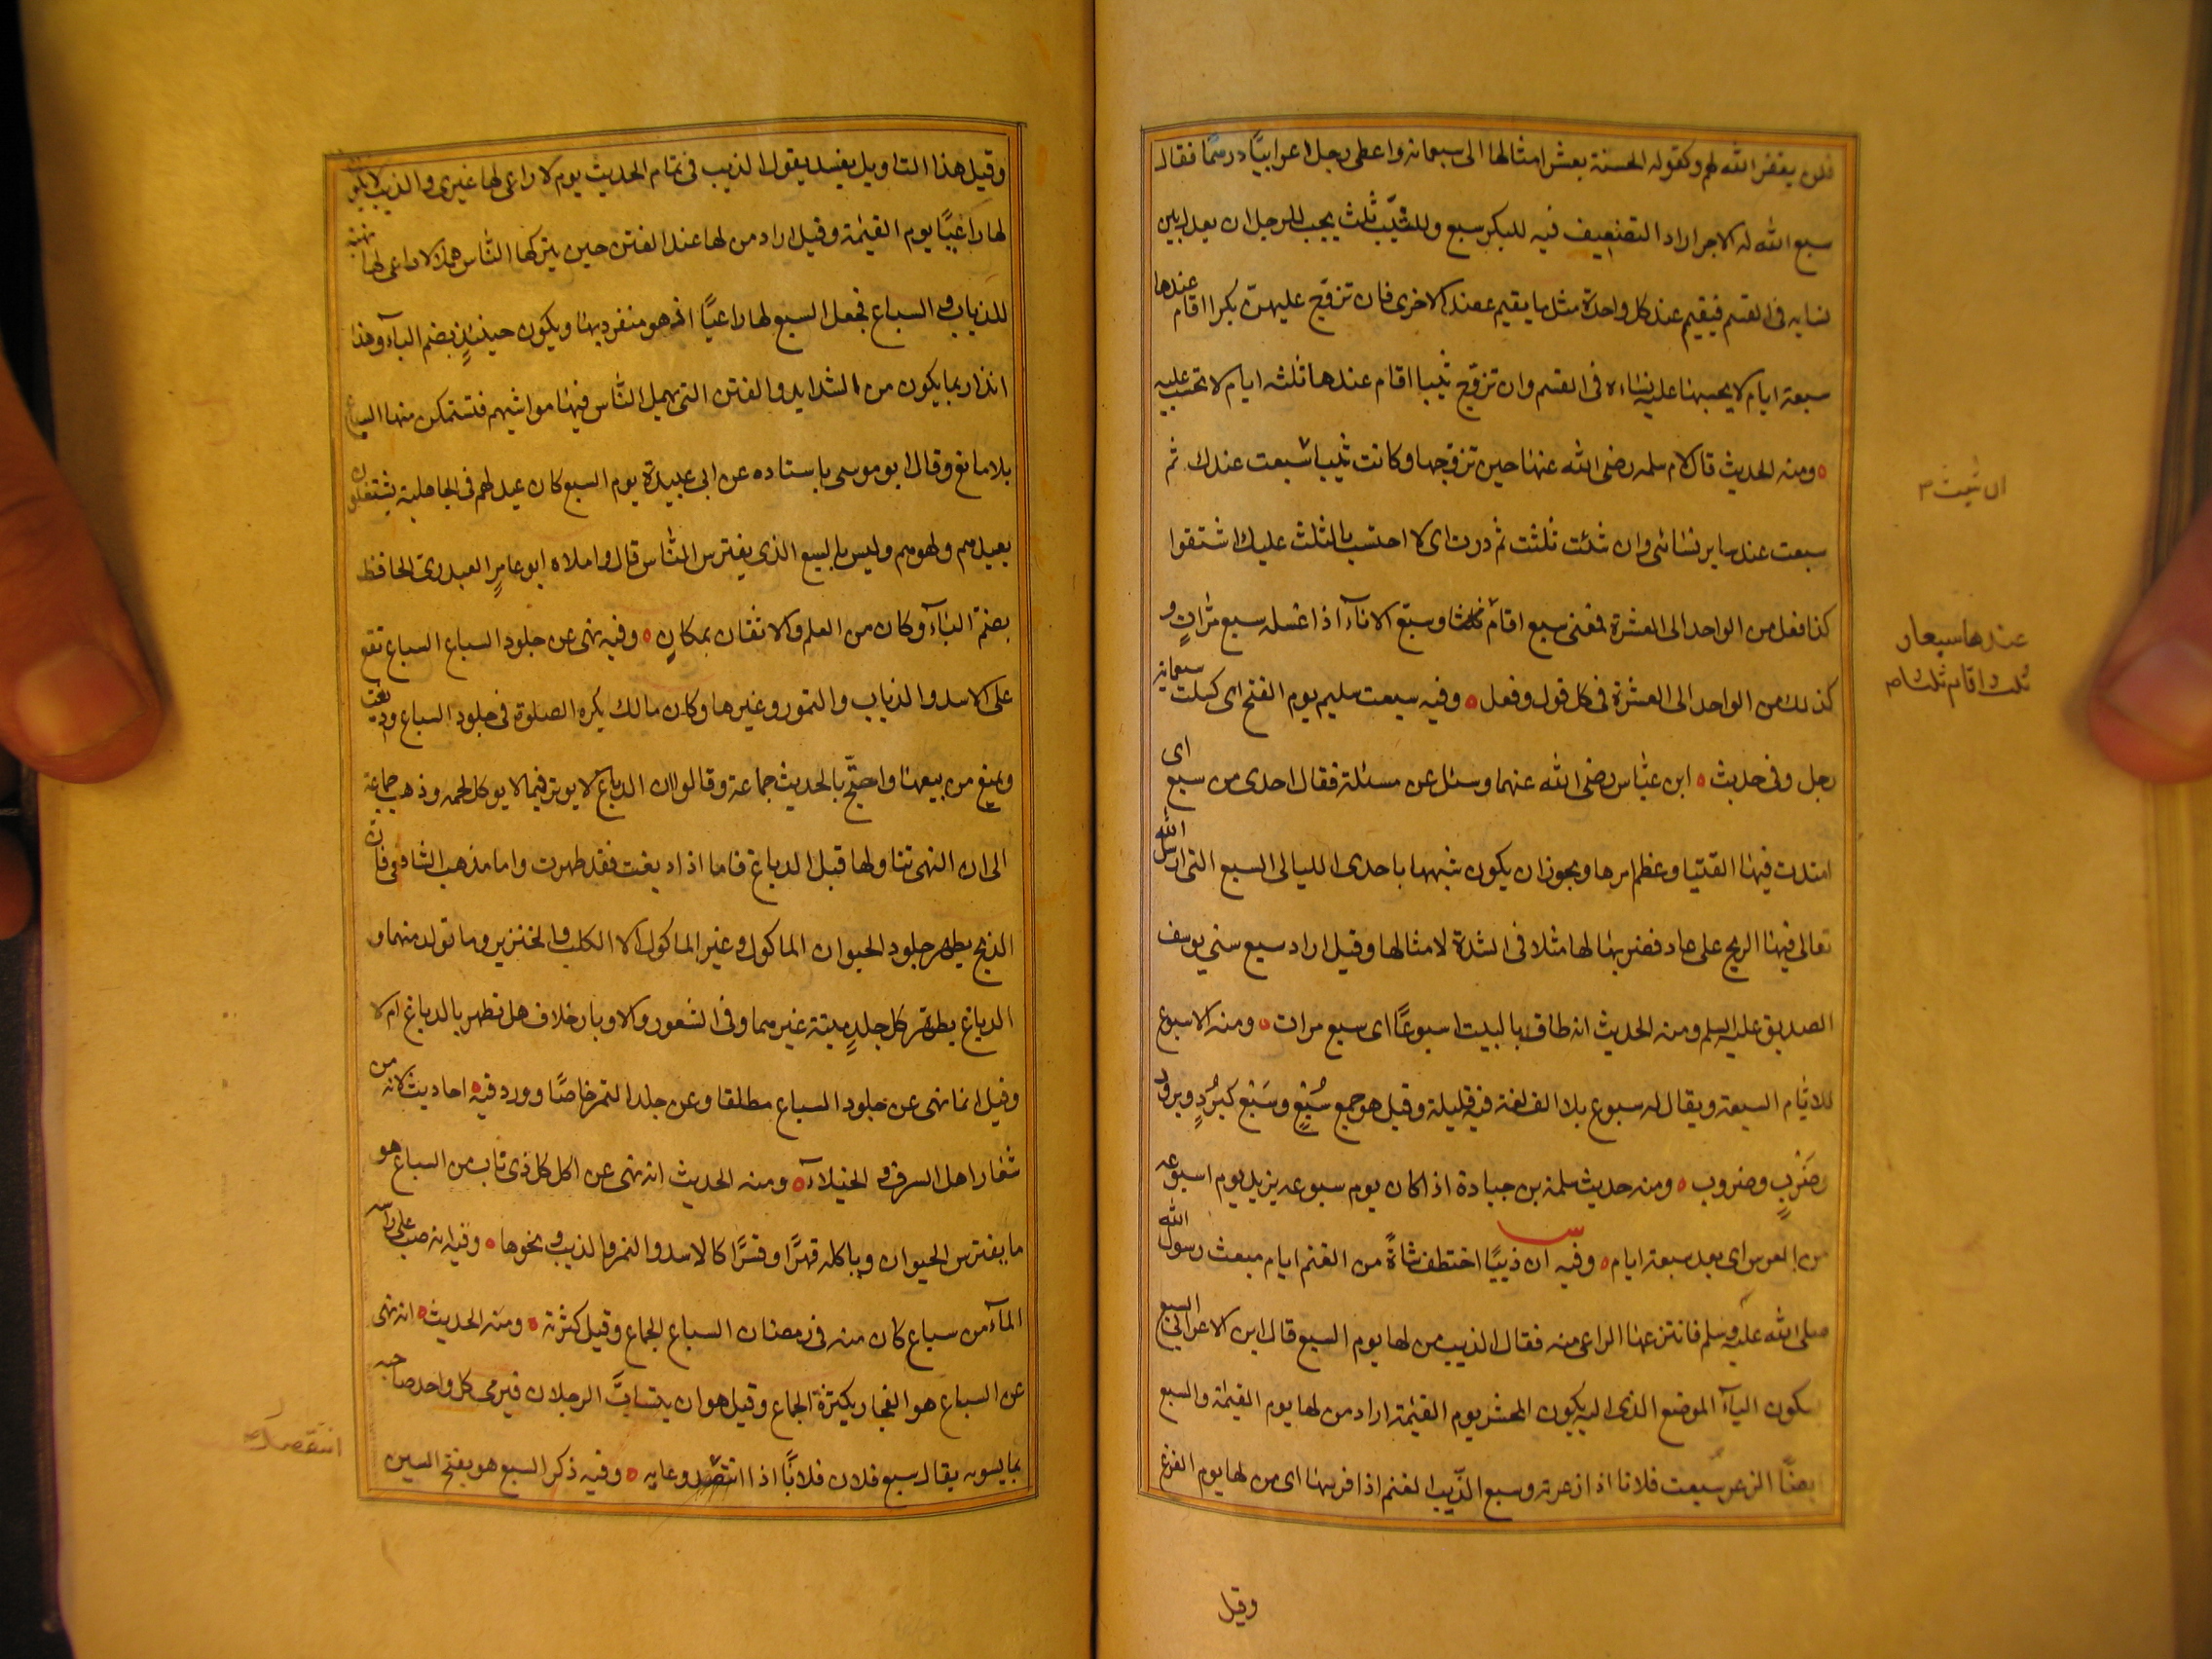 فلن يغفر الله لهم وكقوله الحسنة بعشر امثالها الى سبعمائة واعطى رجل اعرابيّا درهمًا فقال
سبع الله له الاجر اراد التضعيف فيه للبكر سبع وللثيّب ثلث يجب للرجل ان يعدل بين
نسايه فى القسم فيقيم عند كل واحدة مثل ما يقيم عند الاخرى فان تزوّج عليهنّ بكرا اقام عندها
سبعة ايام لا يحسبها عليه نساءه فى القسم وان تزوّج ثيبا اقام عندها ثلثه ايام لا تحتسب عليه
ومنه الحديث قال لام سلمه رضى الله عنها حين تزوجها وكانت ثيبا سبعت عندك ثم
ان شيت
سبعت عند ساير نسائى وان شئت ثلثت ثم درت اى لا احتسب بالثلث عليك اشتقوا
كذا فعل من الواحد الى العشرة فمعنى سبع اقام وسبّع الاناآ اذا غسله سبع مرّاتٍ و
عندها سبعا و
ثلث واقام ثلثا
كذلك من الواحد الى العشرة فى كل قول وفعل وفيه سبعت سليم يوم الفتح اى كملت سبعمائة
رجل وفى حديث ابن عبّاس رضى الله عنهما وسئل عن مسئلة فقال احدى من سبع اى
اشتدت فيها الفتيا وعظم امرها ويجوز ان يكون شبهها باحدى الليالى السبع التى ارسل الله
تعالى فيها الريح على عاد فضربها لها مثلا فى الشدة لامثالها وقيل اراد سبع سني يوسف
الصديق عليه السلم ومنه الحديث انه طاف بالبيت اسبوعًا اى سبع مرات ومنه الاسبوع
للايّام السبعة ويقال له سبوع بلا الف لغة فيه قليلة وقيل هو جمع سُبْعٍ وسَبْع كبُرْدٍ وبرود
وضَرْبٍ وضروب ومنه حديث سلمة بن جنادة اذا كان يوم سبوعه يزيد يوم اسبوعه
من العرس اى بعد سبعة ايام وفيه ان ذيبًا اختطف شاةً من الغنم ايام مبعث رسول الله
صلى الله عليه وسلم فانتزعها الراعى منه فقال الذيب من لها يوم السبع قال ابن الاعرابى السبع
بسكون البآ الموضع الذى اليه يكون المحشر يوم القيمة اراد من لها يوم القيمة والسبع
ايضًا الذعر سبعت فلانا اذا ذعرته وسبع الذّيب الغنم اذا فرسها اى من لها يوم الفزع
وقيل
وقيل هذا التاويل يفسد بقول الذيب فى تمام الحديث يوم لا راعى لها غيرى والذيب لا يكون
لها راعيًا يوم القيمة وقيل اراد من لها عند الفتن حين يتركها النّاس هملا لا راعى لها نهبة
للذياب والسباع فجعل السبع لها راعيًا اذ هو منفرد بها ويكون حينئذٍ بضم البآ وهذا
انذار بما يكون من الشدايد والفتن التى يهمل النّاس فيها مواشيهم فتستمكن منها السباع
بلا مانع وقال ابو موسى باسناده عن ابى عبيدة يوم السبع كان عيد لهم فى الجاهلية يشتغلون
بعيدهم ولهوهم وليس بالسبع الذى يفترس النّاس قال واملاه ابو عامرٍ العبدرىّ الحافظ
بضمّ البآ وكان من العلم والاتقان بمكانٍ وفيه نهى عن جلود السباع السباع تقع
على الاسد والذياب والنمور وغيرها وكان مالك يكره الصلوة فى جلود السباع ودبغت
ويمنع من بيعها واحتجّ بالحديث جماعة وقالوا ان الدباغ لا يوثر فيما لا يوكل لحمه وذهب جماعة
الى ان النهى تناولها قبل الدباغ فاما اذا دبغت فقد طهرت واما مذهب الشافعى فان
الذبح يطهر جلود الحيوان الماكول وغير الماكول الا الكلب والخنزير وما تولد منهما و
الدباغ يطهّر كل جلدٍ ميتة غيرهما وفى الشعور والاوبار خلاف هل تطهر بالدباغ ام لا
وقيل انما نهى عن جلود السباع مطلقا وعن جلد النمر خاصًا وورد فيه احاديث لانه من
شعار اهل السرف والخيلاآ ومنه الحديث انه نهى عن اكل كل ذى ناب من السباع هو
ما يفترس الحيوان وياكله قهرًا وقسرًا كالاسد والنمر والذيب ونحوها وفيه انه صب على راسه
المآ من سباع كان منه فى رمضان السباع الجماع وقيل كثرته ومنه الحديث انه نهى
عن السباع هو الفخار بكثرة الجماع وقيل هو ان يتسابّ الرجلان فيرمى كل واحد صاحبه
بما يسوءه يقال سبع فلان فلانًا اذا انتقصه وعابه وفيه ذكر السبع هو بفتح السين
انتقصه